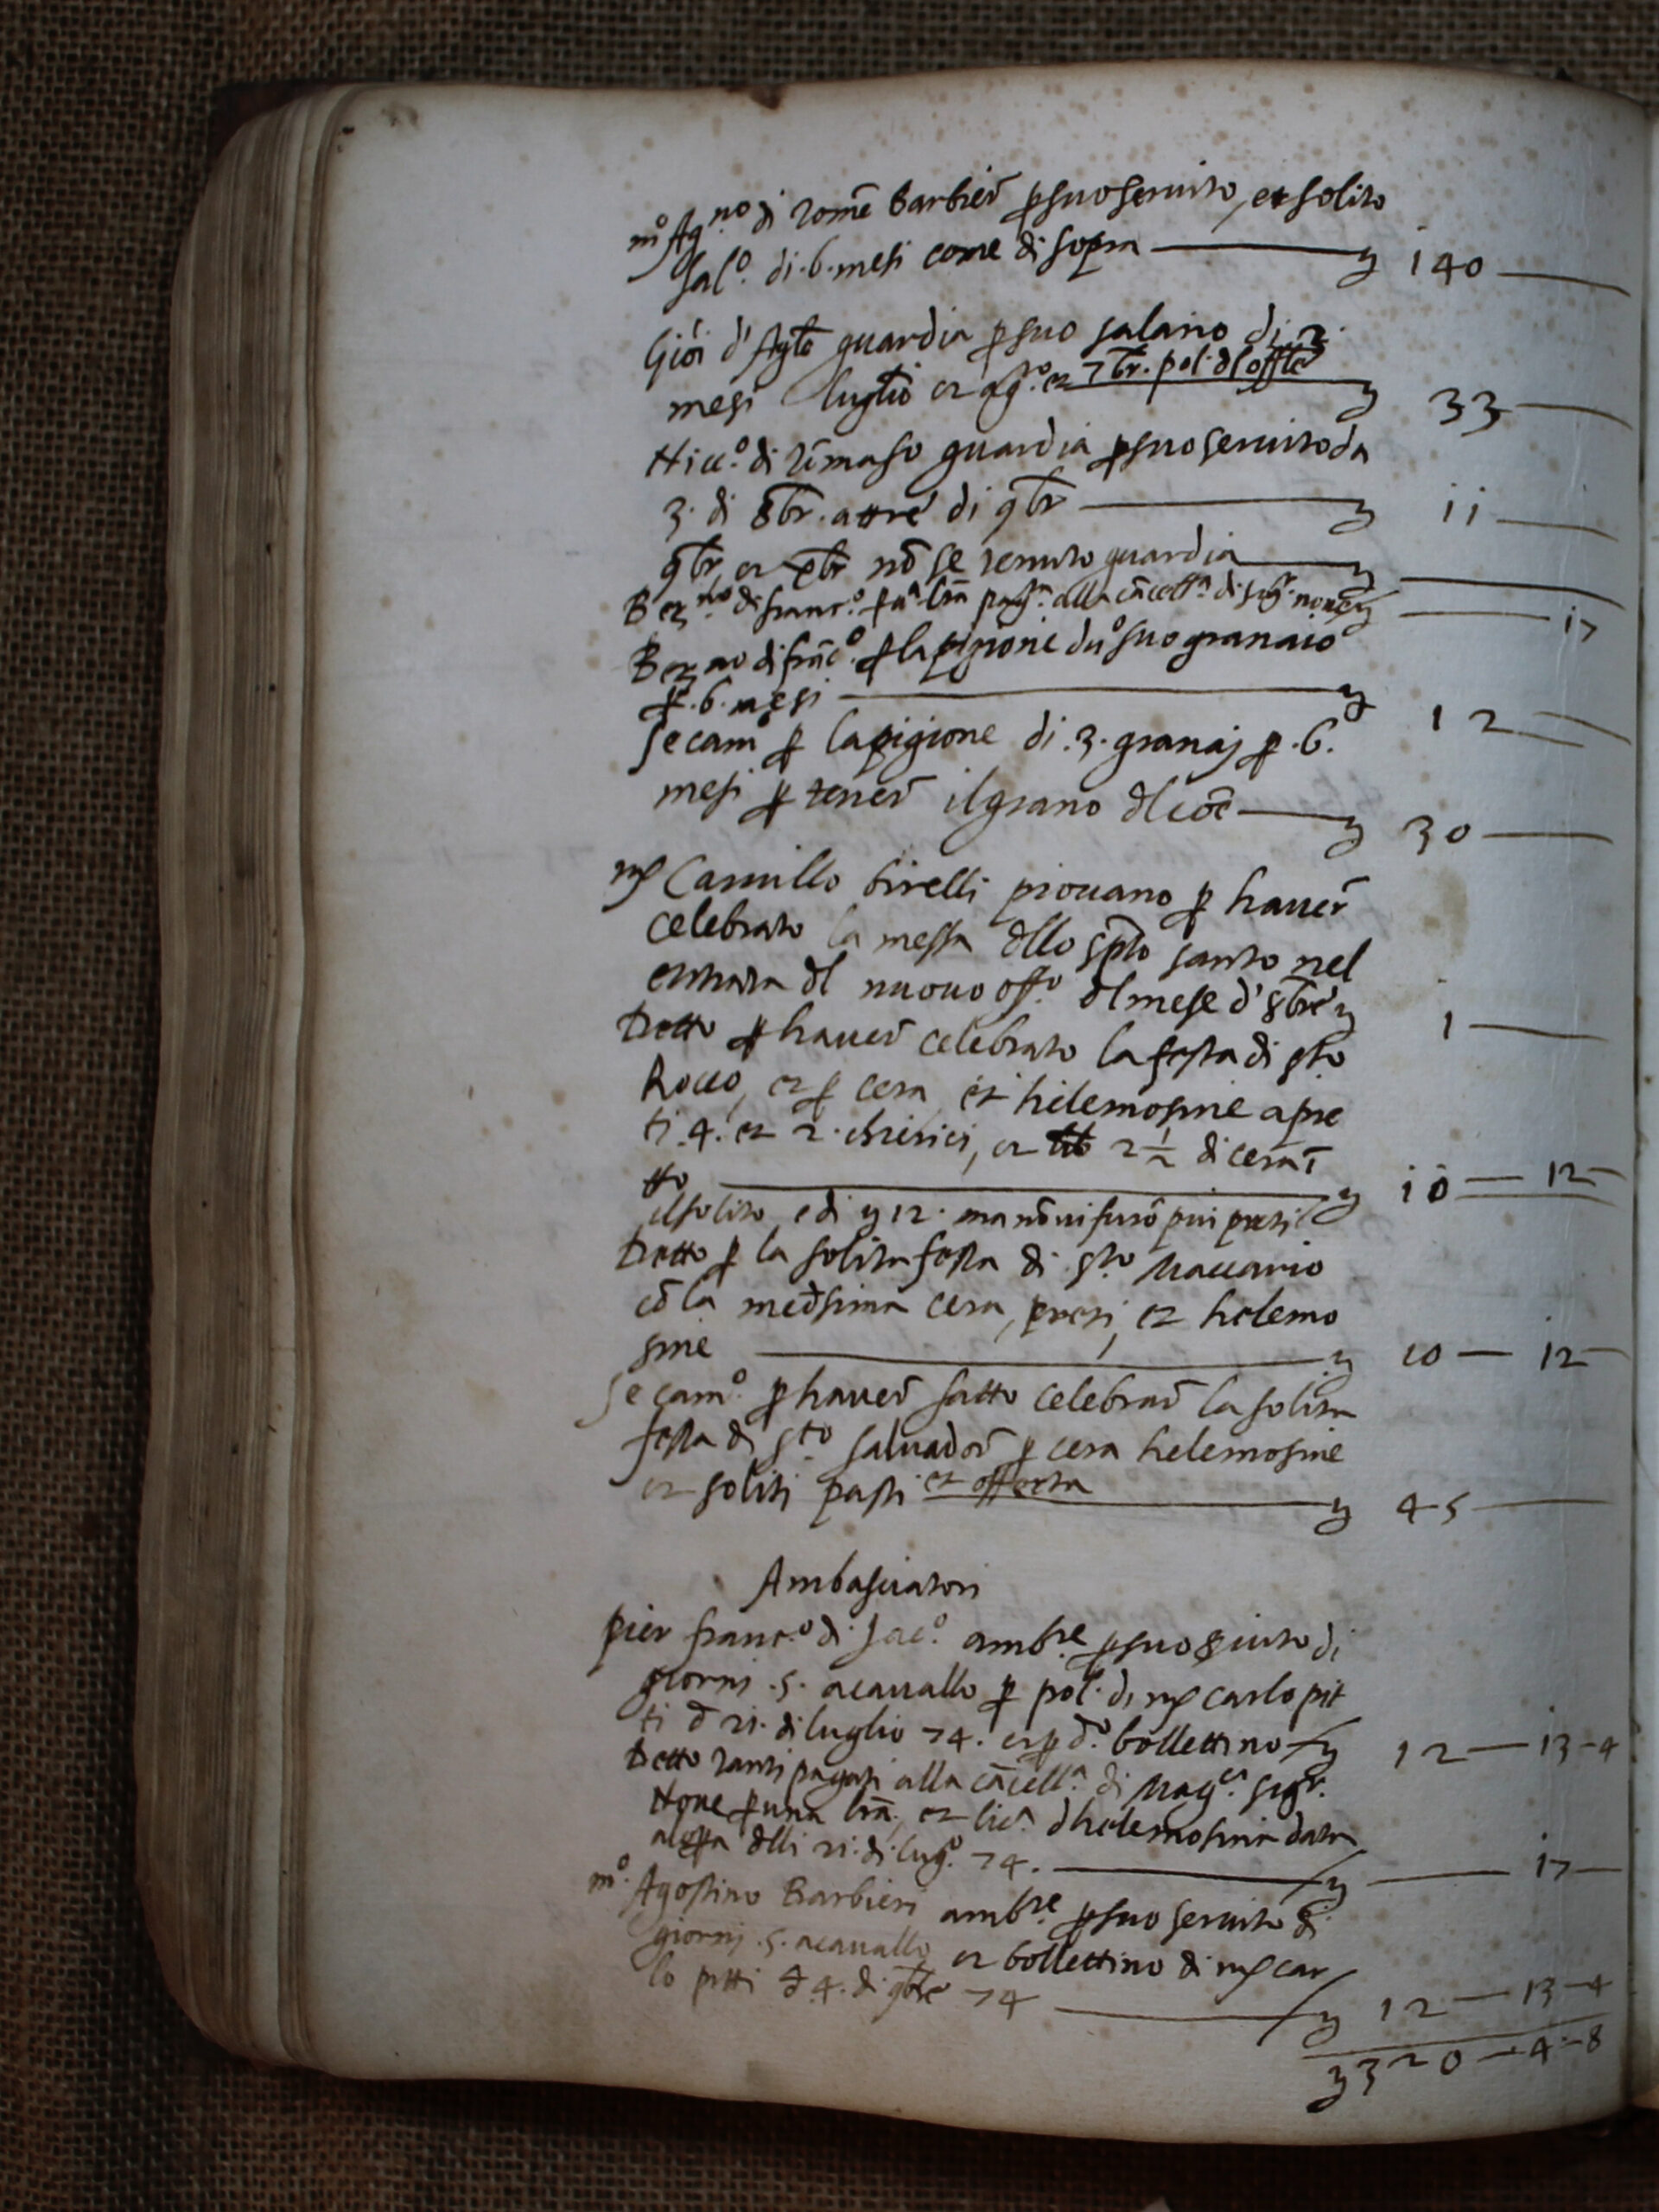 m.º Ag.no di Tomē Barbier̄ p suo seruito, et solito
sal.º di .6. mesi come di sopra — 140 —
Giōi d'Agtō guardia p suo salario di .2.
mesi luglio et ag.º et 7br̄. pol. dl offtō — 33 —
Nicc.º di Tōmaso guardia p suo seruito da
3. di 8br̄. a ttre di 9br̄ — 11 —
9br̄, et xbr̄ nō se tenuto guardia —
Ber.no di franc.º p a lr̄a pag.ª alla cācell.ª di sig.r none — 17
Ber.no di frāc.º p la pigione du.º suo granaio
p .6. mesi — 12 —
Se cam.º p la pigione di .3. granaj p .6.
mesi p tener̄ il grano dl cōe — 30 —
mſ Camillo birelli piouano p hauer̄
celebrato la messa dllo spto santo nel
entrata dl nuouo off.º dl mese d'8bre — 1 —
Detto p hauer̄ celebrato la festa di sto
Rocco, et p cera et helemosine a pre
ti .4. et 2. chierici, et lib 2½ di cera ī
tto — 10 — 12 —
il solito e di 12. ma nō ui furō piu preti
Detto p la solita festa di sto Maccario
cō la medsima cera, preti, et helemo
sine — 10 — 12 —
Se cam.º p hauer̄ fatto celebrar̄ la solita
festa di sto saluador̄ p cera helemosine
et soliti pasti et offerta — 45 —
Ambasciatori
Pier franc.º di Jac.º ambre p suo seruito di
giorni .5. acauallo p pol. di mſ carlo pit
ti d 21. di luglio 74. et p d.º bollettino — 12 — 13 — 4
Detto tanti pagati alla cācell.ª di Mag.ci sig.r
None p una lr̄a, et lic.ª d helemosina data
dlli 21. di lug.º 74. — 17 —
m.º Agostino Barbieri ambre p suo seruito di
giorni .5. acauallo et bollettino di mſ car
lo pitti d 4. di 9bre 74 — 12 — 13 — 4
3320 — 4 — 8